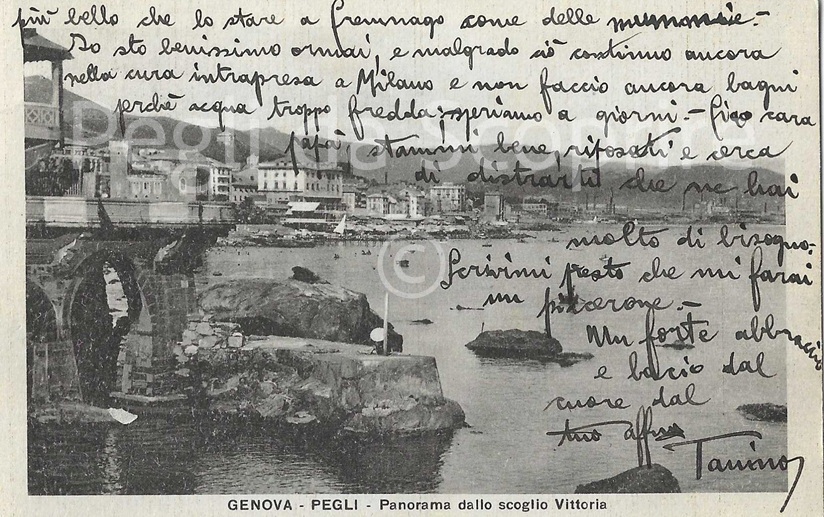 più bello che lo stare a Gremnago come delle mummie.-
Io sto benissimo ormai, e malgrado ciò continuo ancora
nella cura intrapresa a Milano e non faccio ancora bagni
perchè acqua troppo fredda: speriamo a giorni.- Ciao cara
stammi bene, riposati e cerca
di distrarti che ne hai
molto di bisogno.
Scrivimi presto che mi farai
un piacerone.-
Un forte abbraccio
e bacio dal
cuore dal
tuo affmo
Tanino
Pegli da Scoprire
©
GENOVA - PEGLI - Panorama dallo scoglio Vittoria